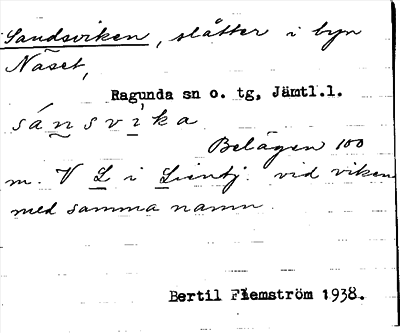 Sandsviken, slåtter i byn
Näset,
Ragunda sn o. tg, Jämtl.l.
sánsvìka
Belägen 100
m. V L i vid viken
med samma namn.
Bertil Flemström 1938.